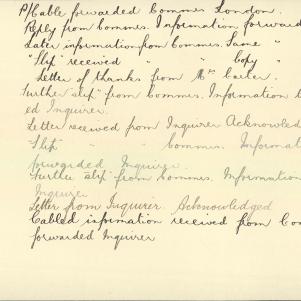 P/Cable forwarded Commes London.
Reply from Commes. Information forward
Later information from Commes. Same "
"Slip" received " " Copy "
Letter of thanks from Mrs Carter.
Further "slip" from Commes. Information t
ed Inquirer.
Letter received from Inquirer Acknowled
"Slip" " " Commes. Informat
forwarded Inquirer.
Further "slip" from Commes. Information
Inquirer
Letter from Inquirer. Acknowledged
Cabled information received from Co
forwarded Inquirer